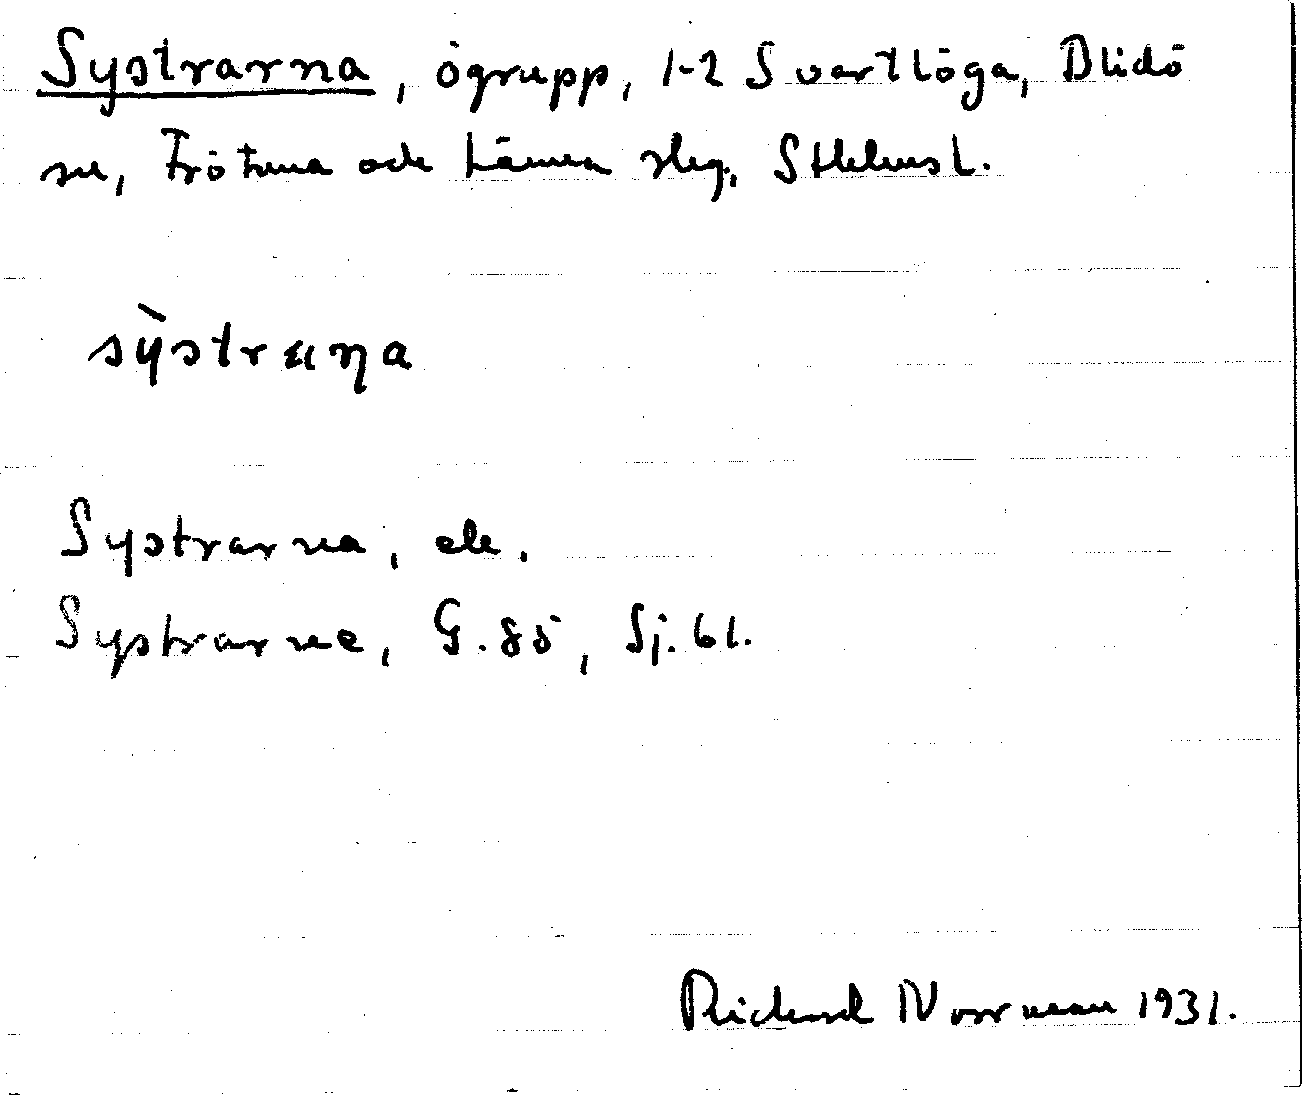 Systrarna, ögrupp, 1-2 Svartlöga, Blidö
sn, Frötuna och Länna slg, Sthlms l.
sỳstraŋa
Systrarna, ek.
Systrarne, G.85, Sj. 61.
Rickard Norrman 1931.